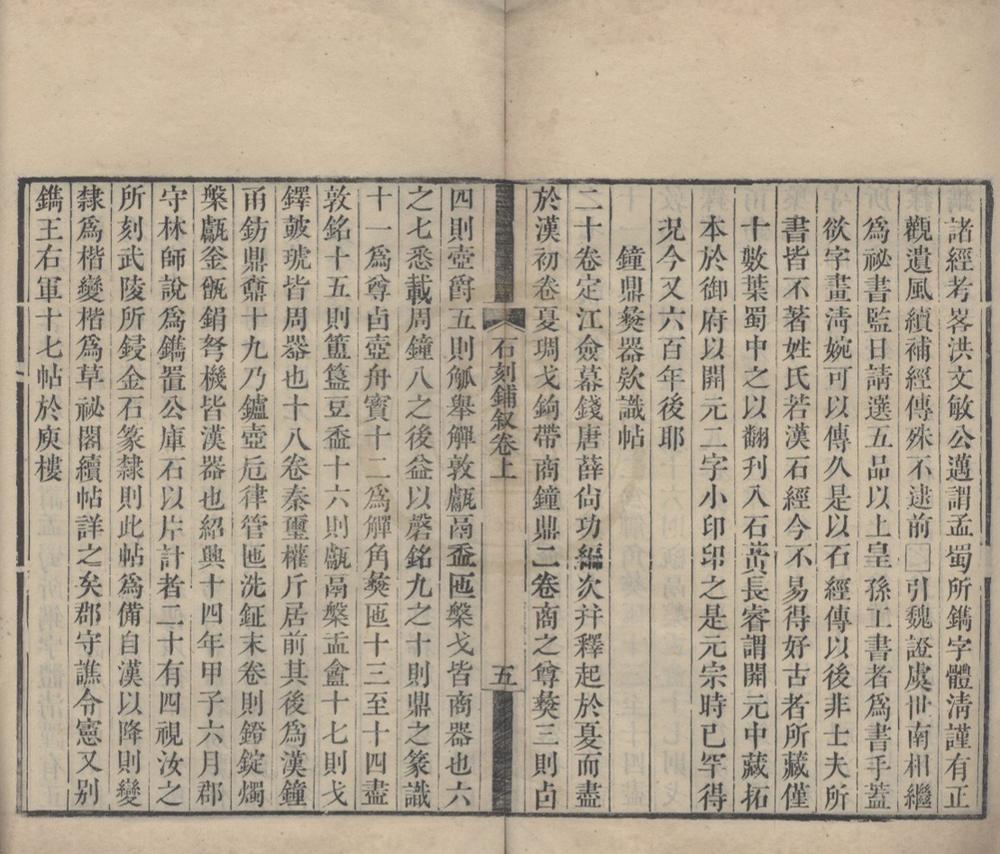 諸經考畧洪文敏公邁謂孟蜀所鐫字體清謹有正
觀遺風續補經傳殊不逮前囗引魏證虞世南相繼
爲祕書監日請選五品以上皇孫工書者爲書手蓋
欲字畫淸婉可以傳久是以石經傳以後非士夫所
書皆不著姓氏若漢石經今不易得好古者所藏僅
十數葉蜀中之以翻刋入石黃長睿謂開元中藏拓
本於御府以開元二字小印印之是元宗時已罕得
況今又六百年後耶
鐘鼎彝器欵識帖
二十卷定江僉幕錢唐薛尙功編次幷釋起於夏而盡
於漢初卷夏琱戈鉤帶商鐘鼎二卷商之尊彝三則卣
石刻鋪叙卷上
五
四則壺爵五則觚舉觶敦甗鬲盉匜槃戈皆商器也六
之七悉載周鐘八之後益以磬銘九之十則鼎之篆識
十一爲尊卣壺舟寳十二爲觶角彝匜十三至十四盡
敦銘十五則簠簋豆盉十六則甗鬲槃盂盦十七則戈
鐸鼓琥皆周器也十八卷秦璽權斤居前其後爲漢鐘
甬鈁鼎鼐十九乃鑪壺卮律管匜洗鉦末卷則鐙錠燭
槃甗釜甑鋗弩機皆漢器也紹興十四年甲子六月郡
守林師說爲鐫置公庫石以片計者二十有四視汝之
所刻武陵所鋟金石篆隸則此帖爲備自漢以降則變
隸爲楷變楷爲草祕閣續帖詳之矣郡守譙令憲又别
鐫王右軍十七帖於庾樓